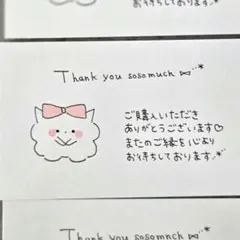 お待ちしております
Thank you sosomuch
ご購入いただき
ありがとうございます♡
またのご縁を心より
お待ちしております。
Thank you sosomuch